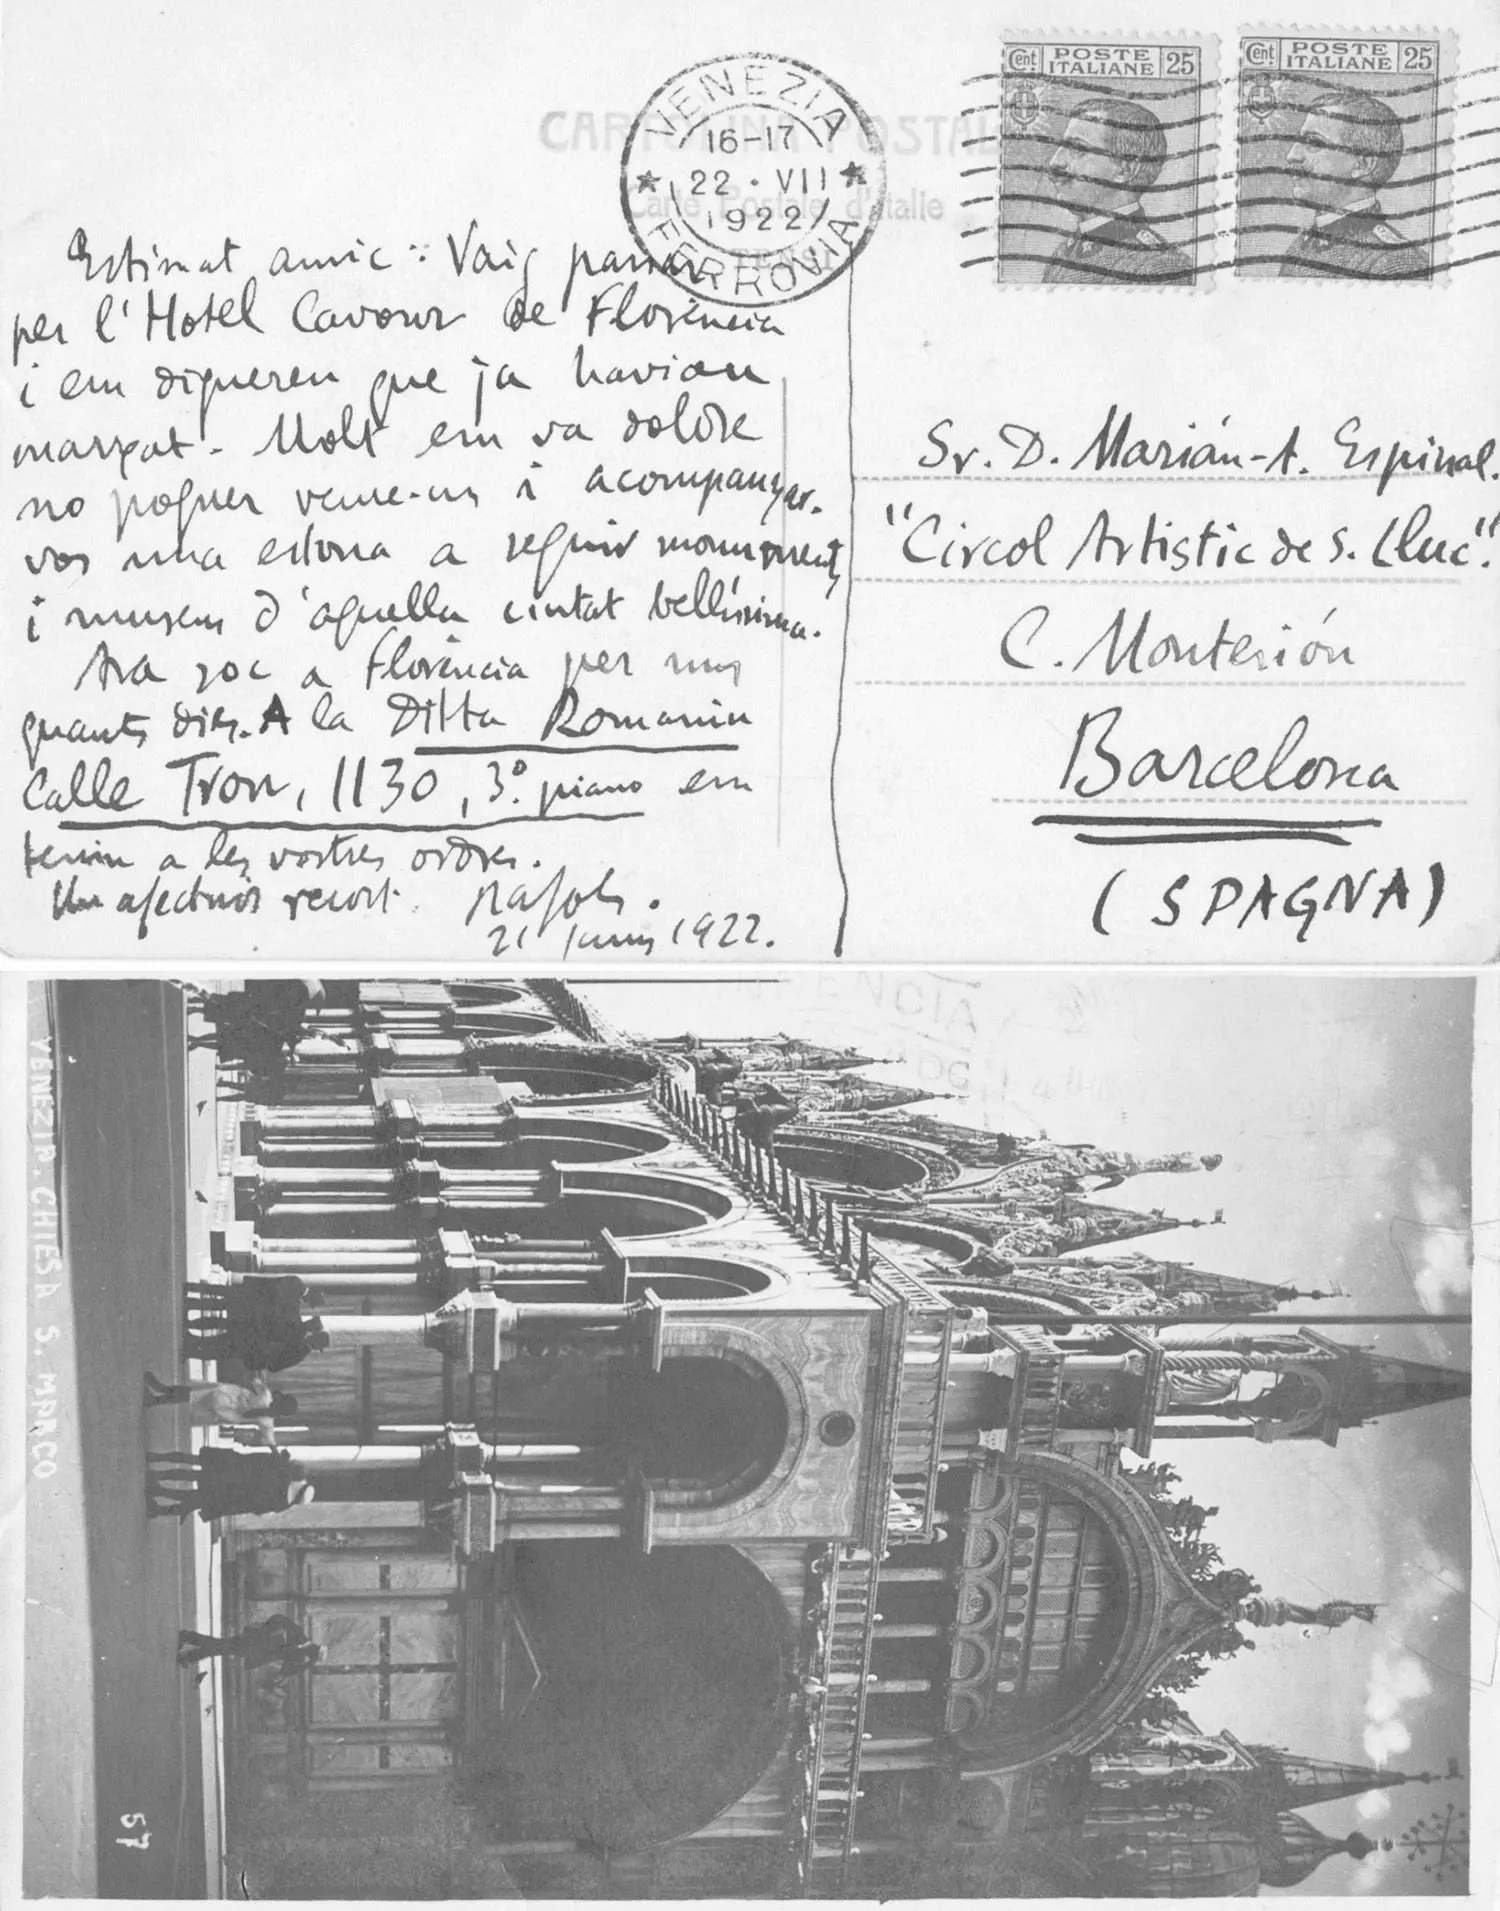 CARTOLINA POSTALE
Carte Postale d'Italie
VENEZIA
16-17
22 · VII
1922
FERROVIA
Cent. POSTE ITALIANE 25
Cent. POSTE ITALIANE 25
Estimat amic: Vaig passar
per l'Hotel Cavour de Florència
i em digueren que ja havían
marxat. Molt em va doldre
no poguer veure-us i acompanyar-
vos una estona a seguir monuments
i museus d'aquella ciutat bellíssima.
Ara soc a Florència per uns
quants dies. A la Ditta Romanin
Calle Tron, 1130, 3º piano em
teniu a les vostres ordres.
Un afectuós recort. Ràfols.
21 Juny 1922.
Sr. D. Marián-A. Espinal.
"Circol Artistic de S. Lluc".
C. Montesión
Barcelona
(SPAGNA)
VENEZIA. CHIESA S. MARCO
57